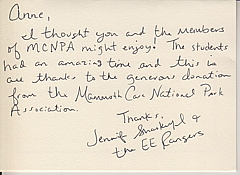 Anne,
I thought you and the members
of MCNPA might enjoy! The students
had an amazing time and this is
are thanks to the generous donation
from the Mammoth Cave National Park
Association.
Thanks,
Jennifer &
the EE Rangers